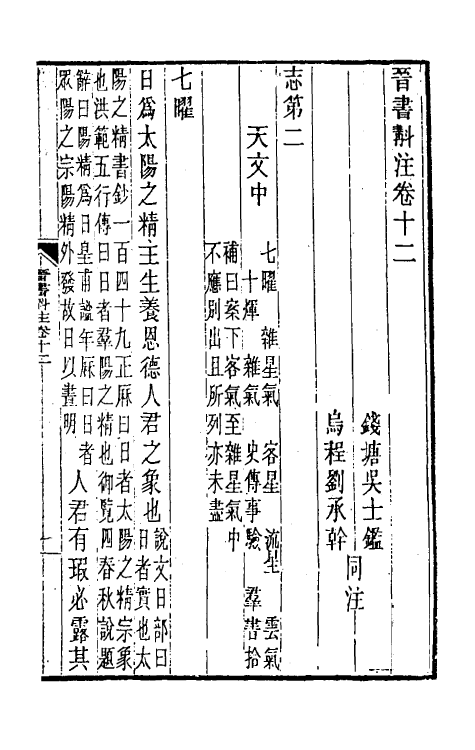 晉書斠注卷十二
錢塘吳士鑑
烏程劉承幹
同注
志第二
天文中
七曜 雜星氣 客星 流星 雲氣
十煇 雜氣 史傳事驗 羣書拾
補曰案下客氣至雜星氣中
不應別出且所列亦未盡
七曜
日爲太陽之精主生養恩德人君之象也
說文日部曰
日者實也太
陽之精書鈔一百四十九正厤曰日者太陽之精宗象
也洪範五行傳曰日者羣陽之精也御覽四春秋說題
辭曰陽精爲日皇甫謐年厤曰日者
眾陽之宗陽精外發故日以晝明
人君有瑕必露其
晉書斠注卷十二
一